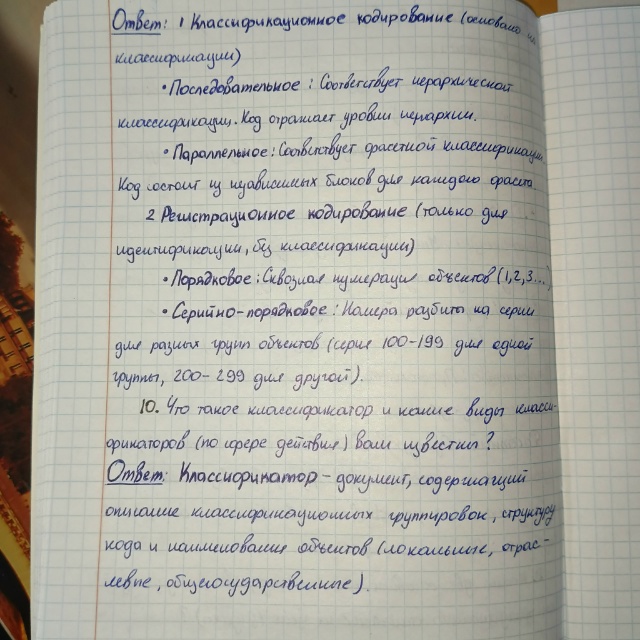 Ответ: 1 Классификационное кодирование (основано на
классификации)
• Последовательное: Соответствует иерархической
классификации. Код отражает уровни иерархии.
• Параллельное: Соответствует фасетной классификации
Код состоит из независимых блоков для каждого фасета.
2 Регистрационное кодирование (только для
идентификации, без классификации)
• Порядковое: Сквозная нумерация объектов (1,2,3...)
• Серийно-порядковое: Номера разбиты на серии
для разных групп объектов (серия 100-199 для одной
группы, 200-299 для другой).
10. Что такое классификатор и какие виды класси-
фикаторов (по сфере действия) вам известны?
Ответ: Классификатор - документ, содержащий
описание классификационных группировок, структуру
кода и наименование объектов (локальные, отрас-
левые, общегосударственные).